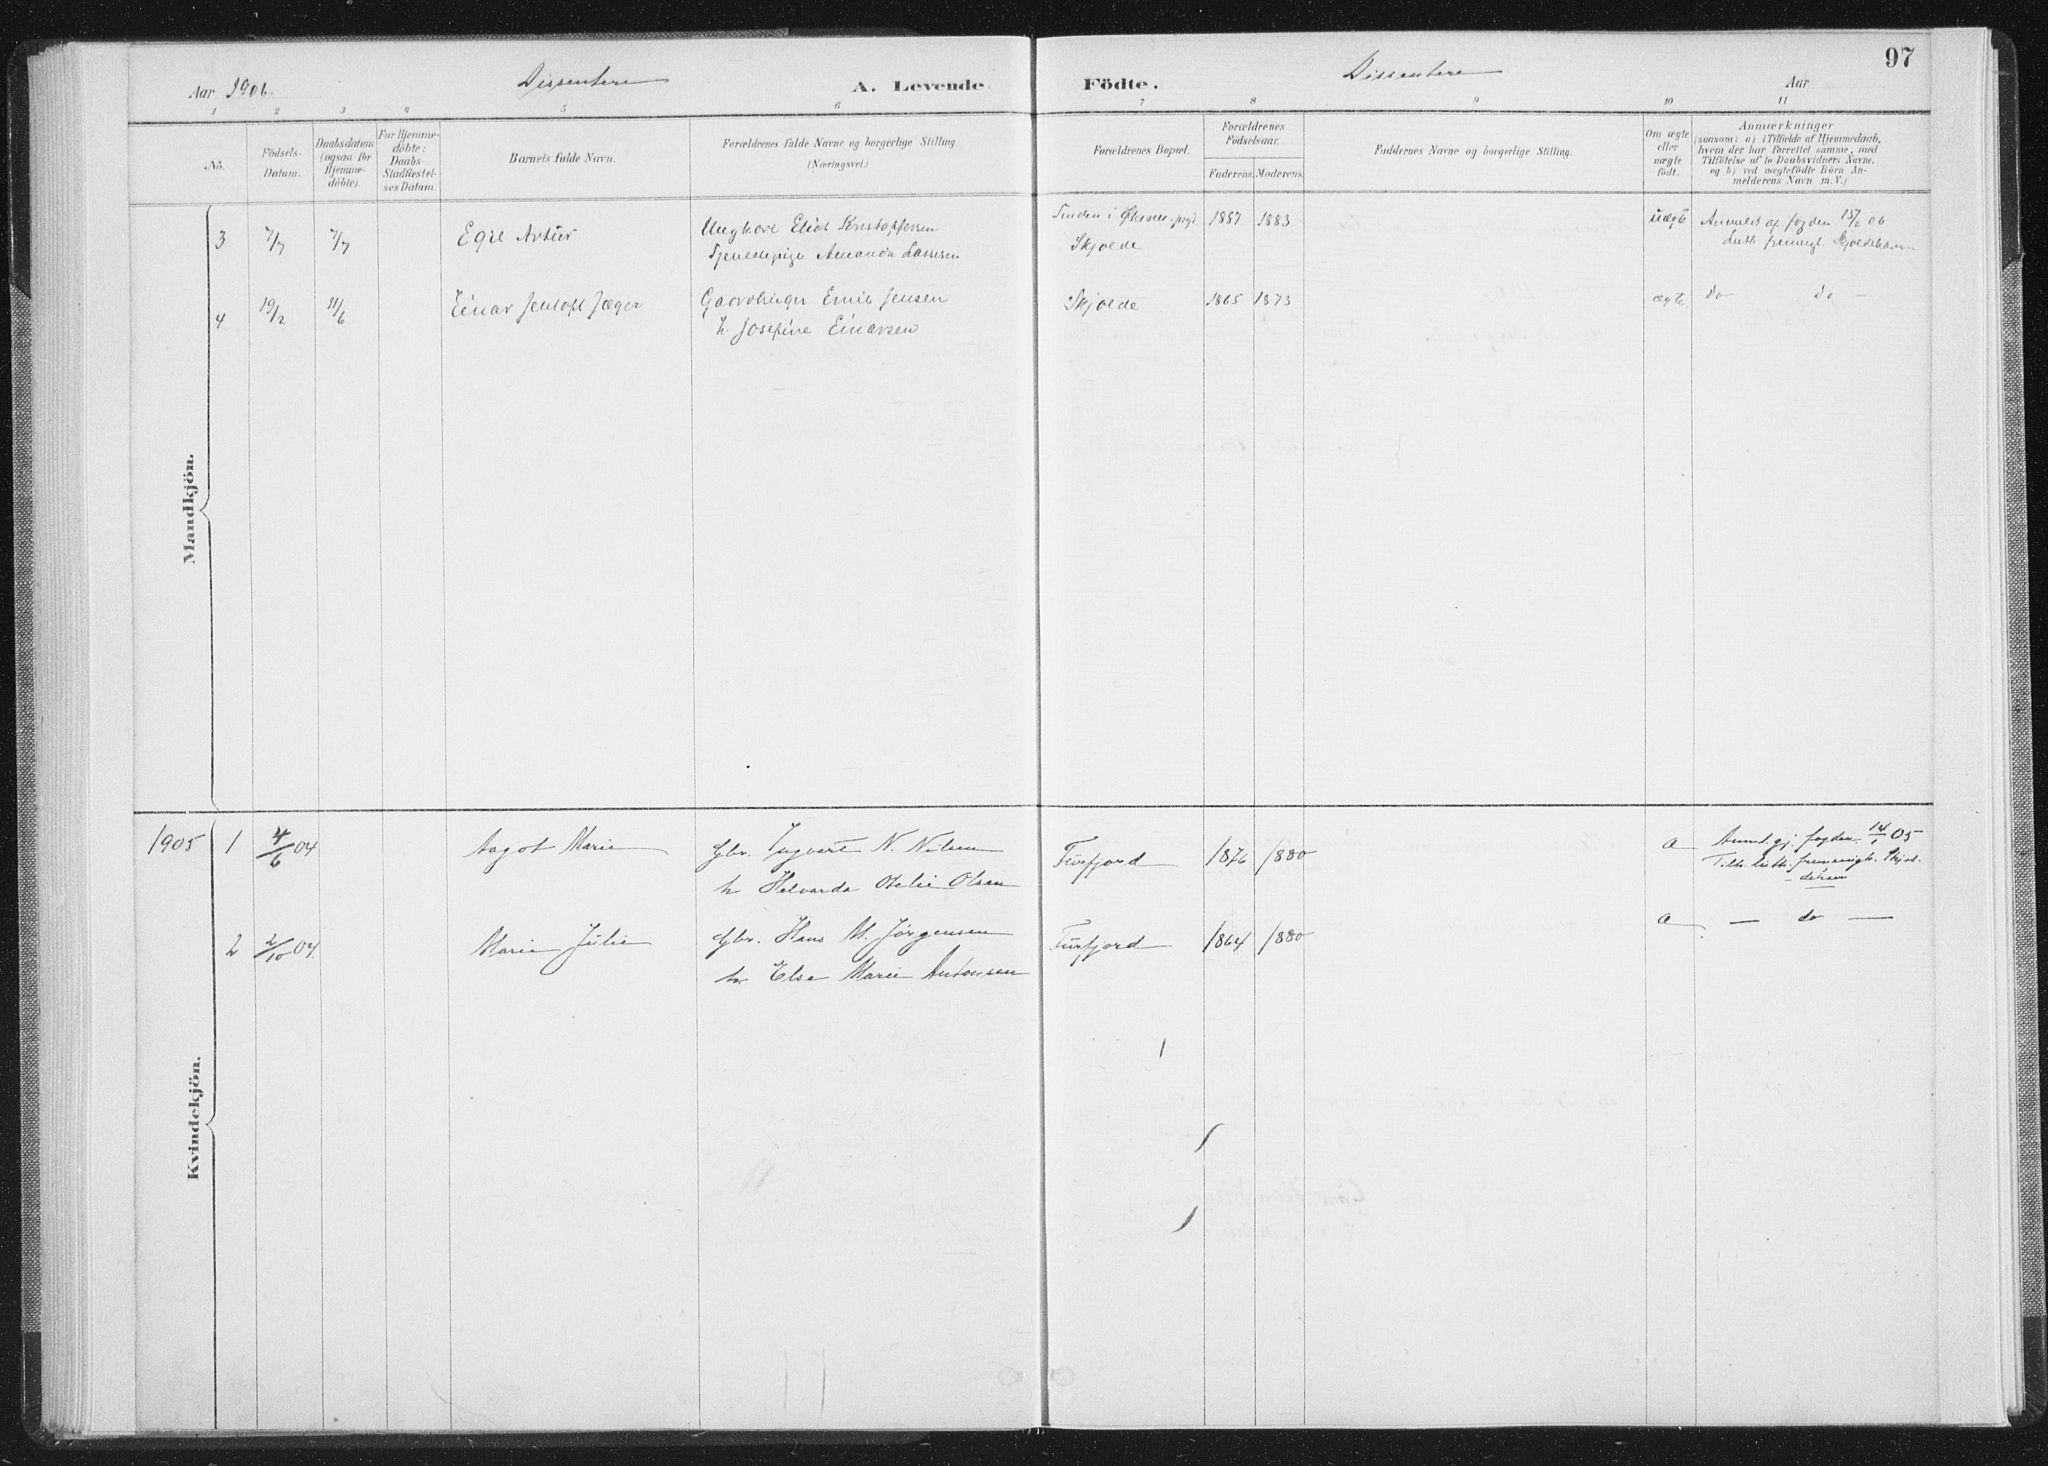 97
Aar 1906. Dissentere A. Levende Födte. Dissentere Aar
1 2 3 4 5 6 7 8 9 10 11
No. Födsels-Datum. Daabsdatum (ogsaa for Hjemmedöbte). For Hjemmedöbte: Daabs-Stadfæstelses Datum. Barnets fulde Navn. Forældrenes fulde Navne og borgerlige Stilling (Næringsvei.) Forældrenes Bopæl. Forældrenes Födselsaar. Faderens. Moderens. Faddernes Navne og borgerlige Stilling. Om ægte eller uægte födt. Anmærkninger (saasom: a) i Tilfælde af Hjemmedaab, hvem der har forrettet samme, med Tilföielse af to Daabsvidners Navne. og b) ved uægtefödte Börn Anmelderens Navn m. V.)
Mandkjön.
3 7/7 7/7 Egil Artur Ungkare Eliot Kristoffersen Tinden i Øksnes prgd 1887 1883 uægte Anmeldt af fogden 15/2 06
Tjenestepige Amanda Lassesen Skjolde Luth. frimegt. Skjoldehavn
4 19/2 31/6 Einar Jentoft Jæger Gaardbruger Emil Jensen Skjolde 1865 1873 ægte. do do —
h. Josefine Einarsen
Kvindekjön.
1905 1 4/6 04 Aagot Marie Gbr. Ingvart N. Nilsen Tusfjord 1876 1880 æ Anmd. gj. fogden 14/1 05
h. Helvarda Otelie Olsen Tilh. luth. frimenigh. Skjol-
dehavn
2 2/10 04. Marie Julie Gbr. Hans M. Jörgensen Tusfjord 1864 1880 æ — do —
h. Else Marie Antonsen